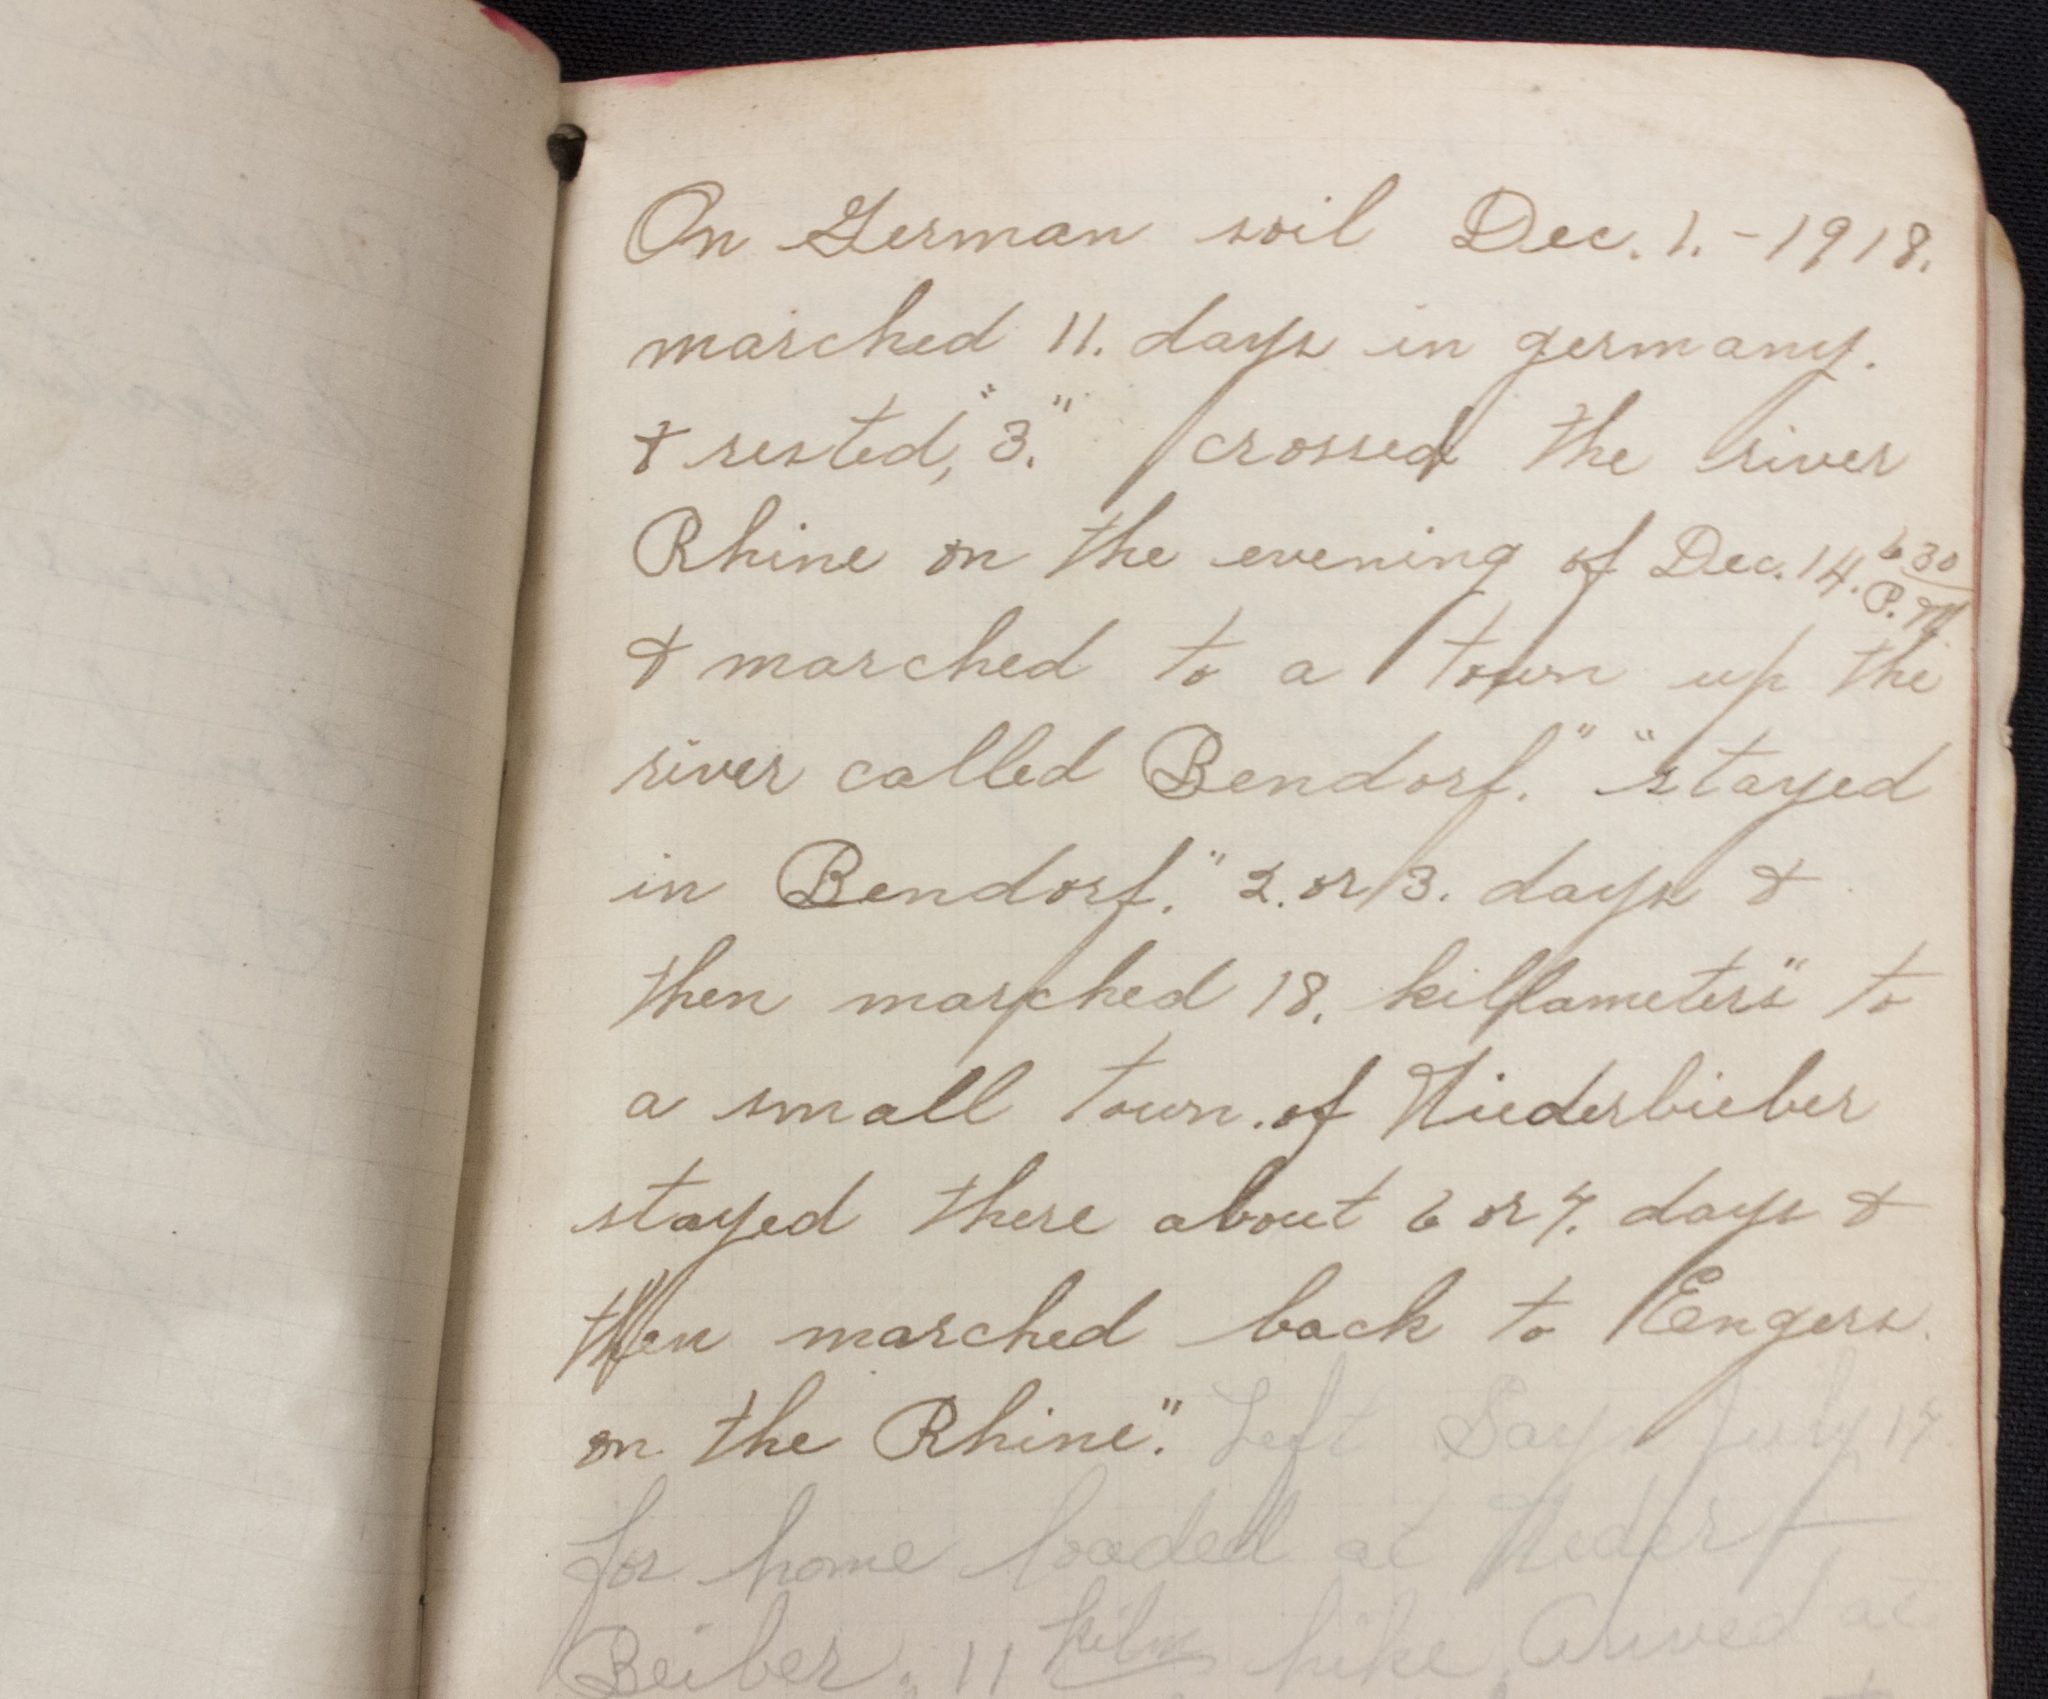 On German soil Dec. 1. - 1918.
marched 11. days in germany.
& rested, "3." crossed the river
Rhine on the evening of Dec. 14. 6 30 P.M
& marched to a town up the
river called Bendorf." "stayed
in Bendorf." 2. or 3. days &
then marched 18. killameters" to
a small town. of Niederbieber
stayed there about 6 or 7. days &
then marched back to Engers.
on the Rhine." Left Sayn July
for home loaded at Neder
Beiber. 11 hike Arived at